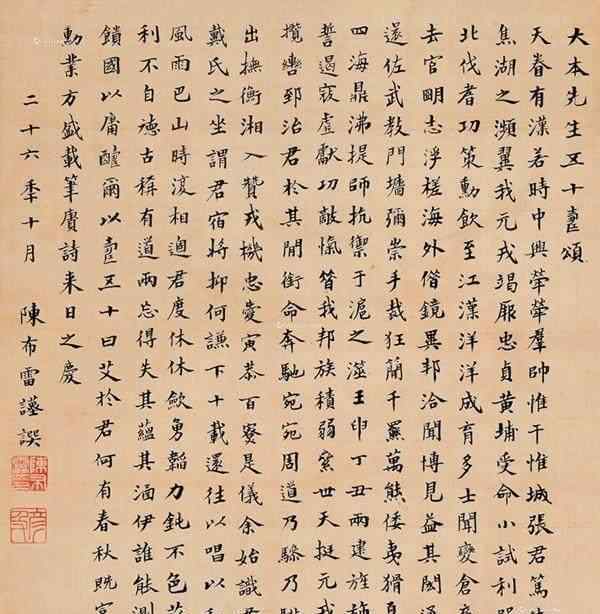 大本先生五十壽頌
天眷有漢若時中興犖犖羣帥惟干惟城張君篤
焦湖之瀕翼我元戎竭厥忠貞黃埔受命小試利
北伐耆功策勳飲至江漢洋洋成育多士聞變倉
去官明志浮槎海外借鏡異邦洽聞博見益其閎
遂佐武教門墻彌崇手裁狂蕑千羆萬熊倭夷猾
四海鼎沸提師抗禦于滬之澨壬申丁丑兩建旌
誓遏寇虐獻功敵愾眷我邦族積弱絫世天挺元
攬轡郅治君於其間銜命奔馳宛宛周道乃驂乃
出撫衡湘入贊戎機忠愛寅恭百寮是儀余始識
戴氏之坐謂君宿將抑何謙下十載還往以唱以
風雨巴山時復相過君度休休歛勇韜力鈍不色
利不自德古稱有道兩忘得失其蘊其涵伊誰能測
國以庸醻爾以壽五十曰艾於君何有春秋既
勳業方盛載筆賡詩来日之慶
二十六年十月 陳布雷謹譔